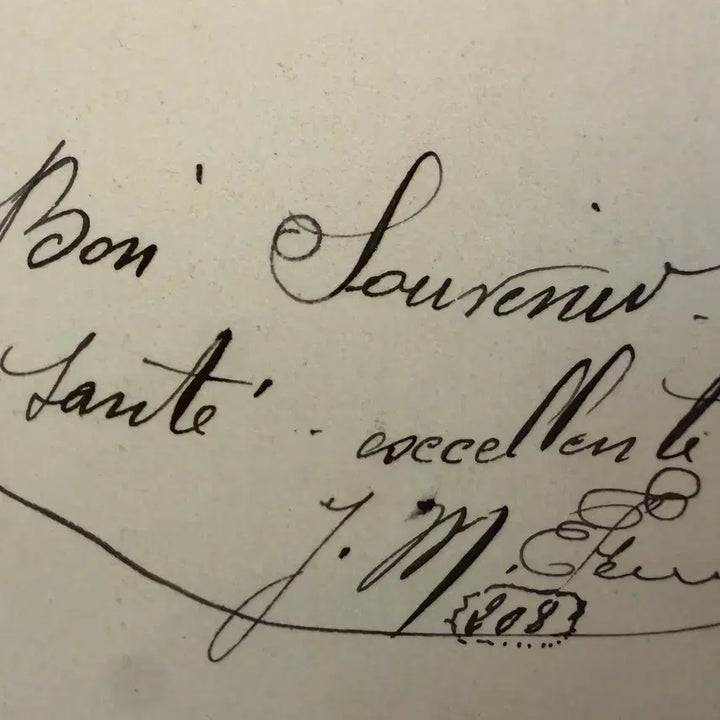 Bon Souvenir.
Santé. excellente
J. M.
208